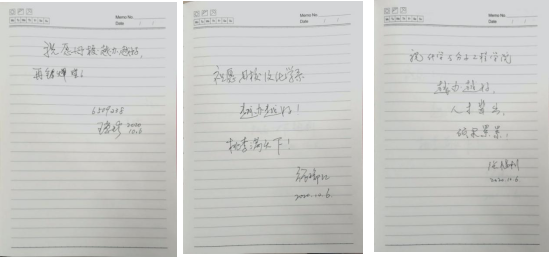 Memo No.
Date / /
祝愿母校越办越好,
再铸辉煌!
2020
10.6
Memo No.
Date / /
祝愿母校及化学系
越办越好!
桃李满天下!
2020.10.6.
Memo No.
Date / /
祝化学与分子工程学院
越办越好,
人才辈出,
硕果累累!
2020.10.6.